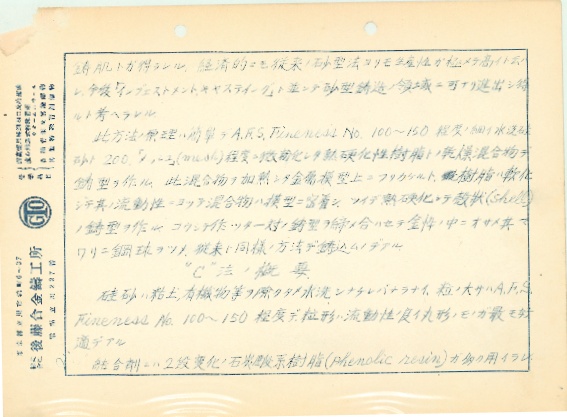 鋳肌トガ得ラレル. 経済的ニモ従来ノ砂型法ヨリモ生産性ガ極メテ高イトコロ
今後「インヴェストメント. キャスティング」ト並ンデ砂型鋳造ノ領域ニ可ナリ進出シ得
ルト考ヘラレル.
此方法ノ原理ハ簡単デ A.F.S. Fineness No. 100〜150 程度ノ細イ水洗硅
砂ト 200 (mesh)程度ニ微粉化シタ熱硬化性樹脂トノ乾燥混合物デ
鋳型ヲ作ル. 此混合物ヲ加熱シタ金属模型上ニフリカケルト. 樹脂ハ軟化
シテ其ノ流動性ニヨッテ混合物ハ模型ニ密着シ. ツイデ熱硬化シテ殻状(shell)
ノ鋳型ヲ作ル. コウシテ作ッタ一対ノ鋳型ヲ締メ合ハセテ金枠ノ中ニオサメ其マ
ワリニ鋼球ヲツメ. 従来ト同様ノ方法デ鋳込ムノデアル
"C"法ノ概要
硅砂ハ粘土,有機物等ヲ除クタメ水洗シナケレバナラナイ. 粒ノ大サハ A.F.S.
Fineness No. 100〜150 程度デ粒形ハ流動性ノ良イ丸形ノモノガ最モ
適デアル
結合剤ニハ2段変化ノ石炭酸系樹脂(phenolic resin)ガ多ク用イラレ
GTO
後藤合金鋳工所
2.